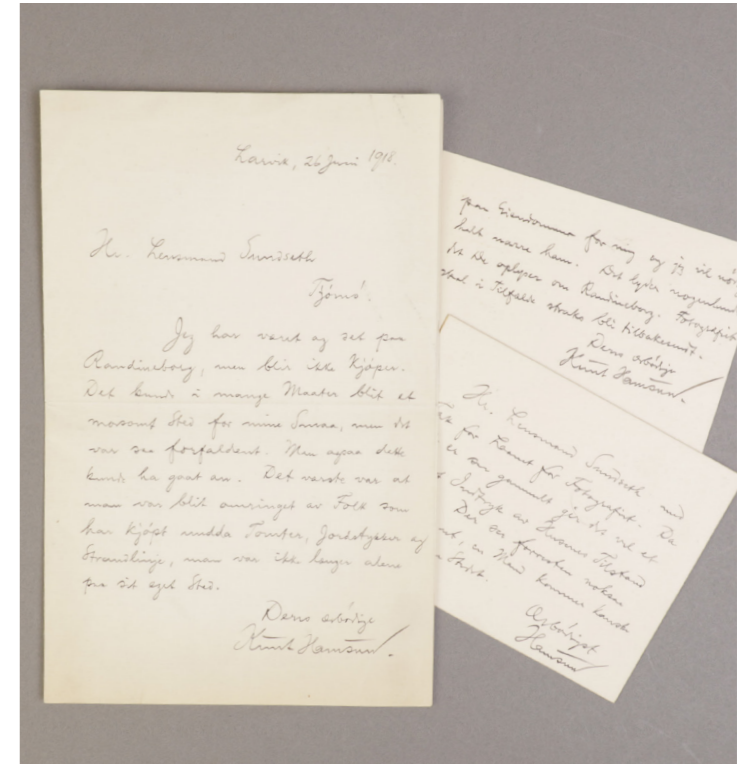 Larvik, 26 Juni 1918.
Hr. Lensmand Sundseth
Tjömö.
Jeg har været og set paa
Randineborg, men blir ikke Kjøper.
Det kunde i mange Maater blit et
morsomt Sted for mine Smaa, men det
var saa forfaldent. Men ogsaa dette
kunde ha gaat an. Det værste var at
man var blit omringet av Folk som
har kjøpt Tomter, Jordstykker og
Strandlinje, man var ikke længer alene
paa sit eget Sted.
Deres ærbödige
Knut Hamsun.
paa Eiendomme for mig og jeg vil
helt være ham. Det lyder nogenlunde
det De oplyser om Randineborg. Fotografiet
skal i Tilfælde straks bli tilbakesendt.
Deres ærbödige
Knut Hamsun.
Hr. Lensmand Sundseth med
Tak for Laanet for Fotografiet. Da
er saa gammelt gir det vel et
Indtryk av Husenes Tilstand
Der ser forresten
en Mand kommer kanske
Stedet.
Ærbödigst
Hamsun